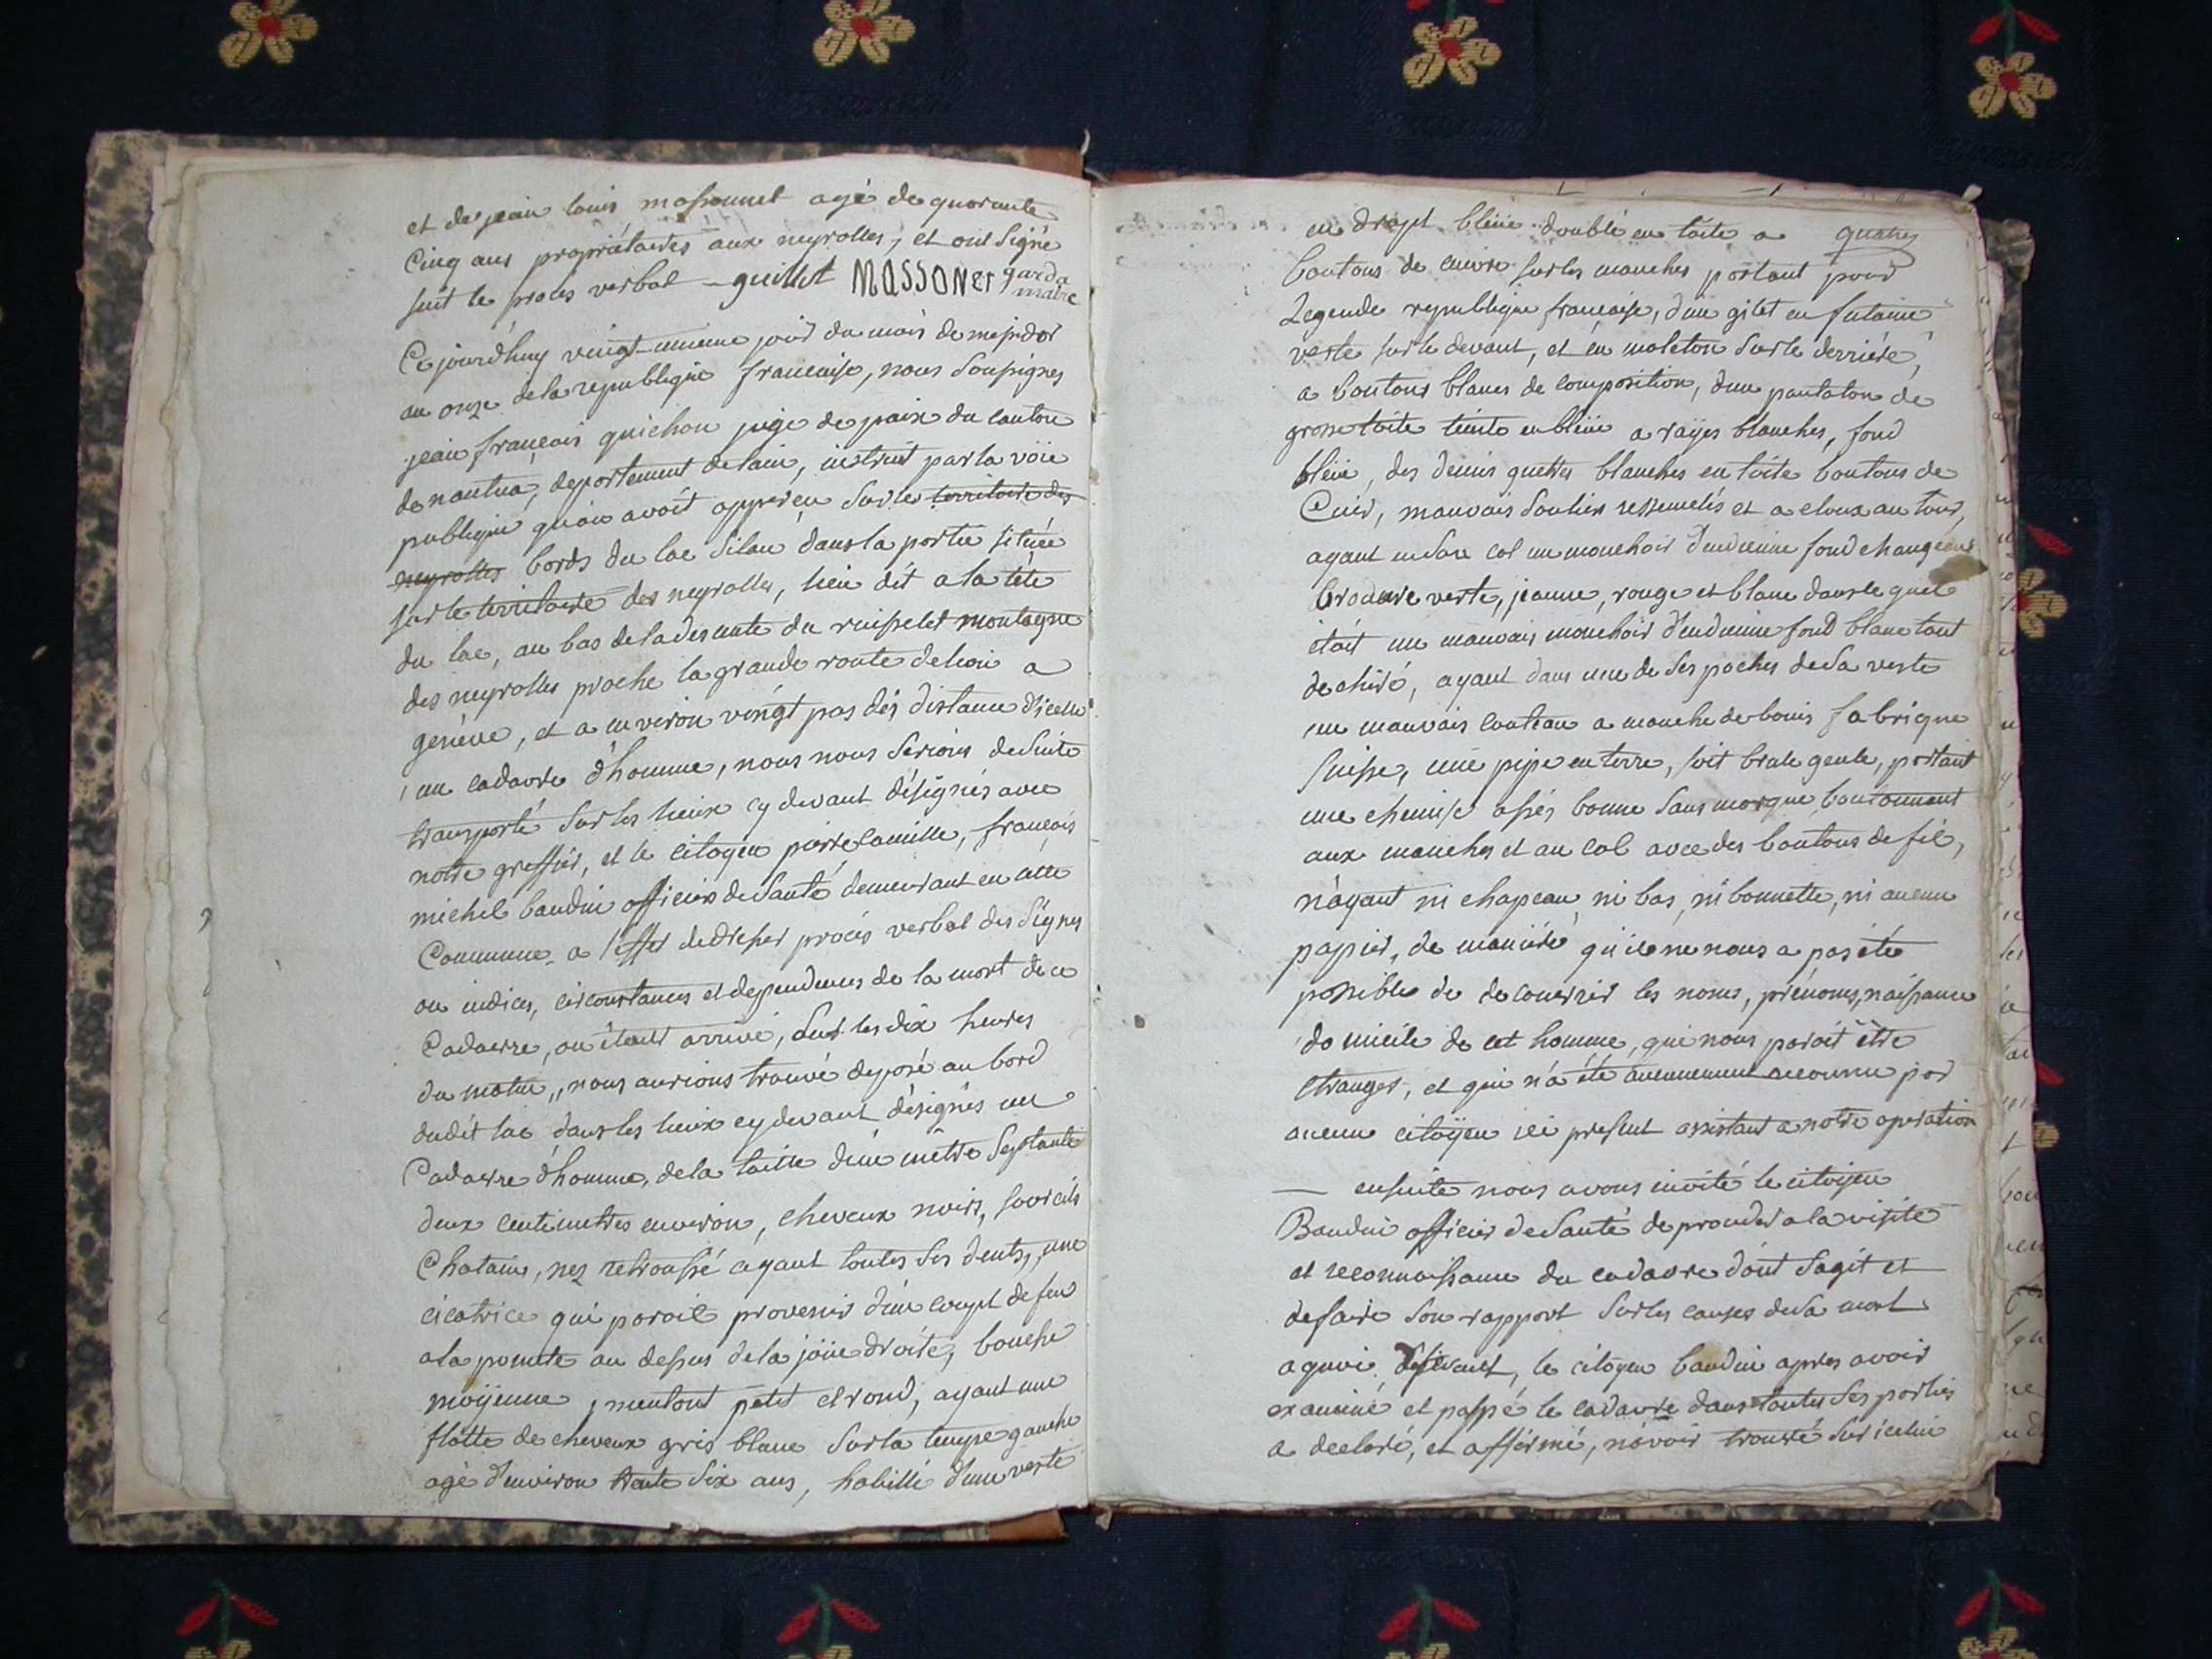 et de jean louis massonnet agé de quarante
Cinq ans propriétaires aux neyrolles, et ont signé
suit le procès verbal - guillot MASSONET garda
maire
Ce jourdhuy vingt-unieme jour du mois de messidor
an onze de la republique française, nous soussignes
jean françois guichon juge de paix du canton
de nantua, departement de lain, instruit par la vöie
publique quon avoit apperçu sur le territoire des
neyrolles bords du lac silan dans la partie située
sur le territoire des neyrolles, lieu dit a la tête
du lac, au bas de la desente du ruisselet montagne
des neyrolles proche la grande route de lion a
genève, et a environ vingt pas des distance d'icelle
un cadavre d'homme, nous nous serions de suite
transporté sur les lieux cy devant désignés avec
notre greffier, et le citoyen pierre camille, françois
michel baudin officier de santé demeurant en cette
Commune a l'effet de dresser procès verbal des signes
ou indices, circonstances et dependences de la mort de ce
Cadavre, ou étant arrivé, sur les dix heures
du matin, nous aurions trouvé deposé au bord
dudit lac dans les lieux cy devant désignés un
Cadavre d'homme, de la taille d'une mêtre septante
deux centimetres environ, cheveux noirs, sourcils
Chatains, nez retroussé ayant toutes ses dents, une
cicatrice qui paroit provenir d'un coupt de feu
a la pomete au dessus de la jöue droite, bouche
moÿenne, mentont petit et rond, ayant une
flotte de cheveux gris blanc sur la tempe gauche
agé d'environ trente six ans, habillé d'une veste
en drapt bleüe doublé en toile a quatres
boutons de cuivre sur les manches portant pour
Legende republique française, d'un gilet en futaine
verte sur le devant, et en moleton sur le derriére,
a boutons blancs de composition, d'un pantalon de
grosse toile teinte en bleüe a raÿes blanches, fond
bleüe, des demis guettes blanches en toile boutons de
Cuir, mauvais souliers ressemelés et a cloux au tour,
ayant en son col un mouchoir d'indienne fond changeant
brodure verte, jeaune, rouge et blanc dans le quel
étoit un mauvais mouchoir d'indienne fond blanc tout
dechiré, ayant dans une de ses poches de sa veste
un mauvais couteau a manche de bouis fabrique
suisse, une pipe en terre, soit brule geule, portant
une chemise assés bonne sans marque boutonnant
aux manches et au col avec des boutons de fil,
n'ayant ni chapeau, ni bas, ni bonnette, ni aucun
papier, de maniére qu'il ne nous a pas été
possible de decouvrir les noms, prénoms, naissance
domicile de cet homme, qui nous paroit être
etranger, et qui n'a été aucunement reconnu par
aucun citöyen ici present assistant a notre operation
— ensuite nous avons invité le citoÿen
Baudin officier de santé de proceder a la visite
et reconnaissance du cadavre dont sagit et
de faire son rapport sur les causes de sa mort
a quoi defferent, le citoyen baudin apres avoir
examiné et passé le cadavre dans toutes ses parties
a declaré, et affirmé, n'avoir trouvé sur icelui